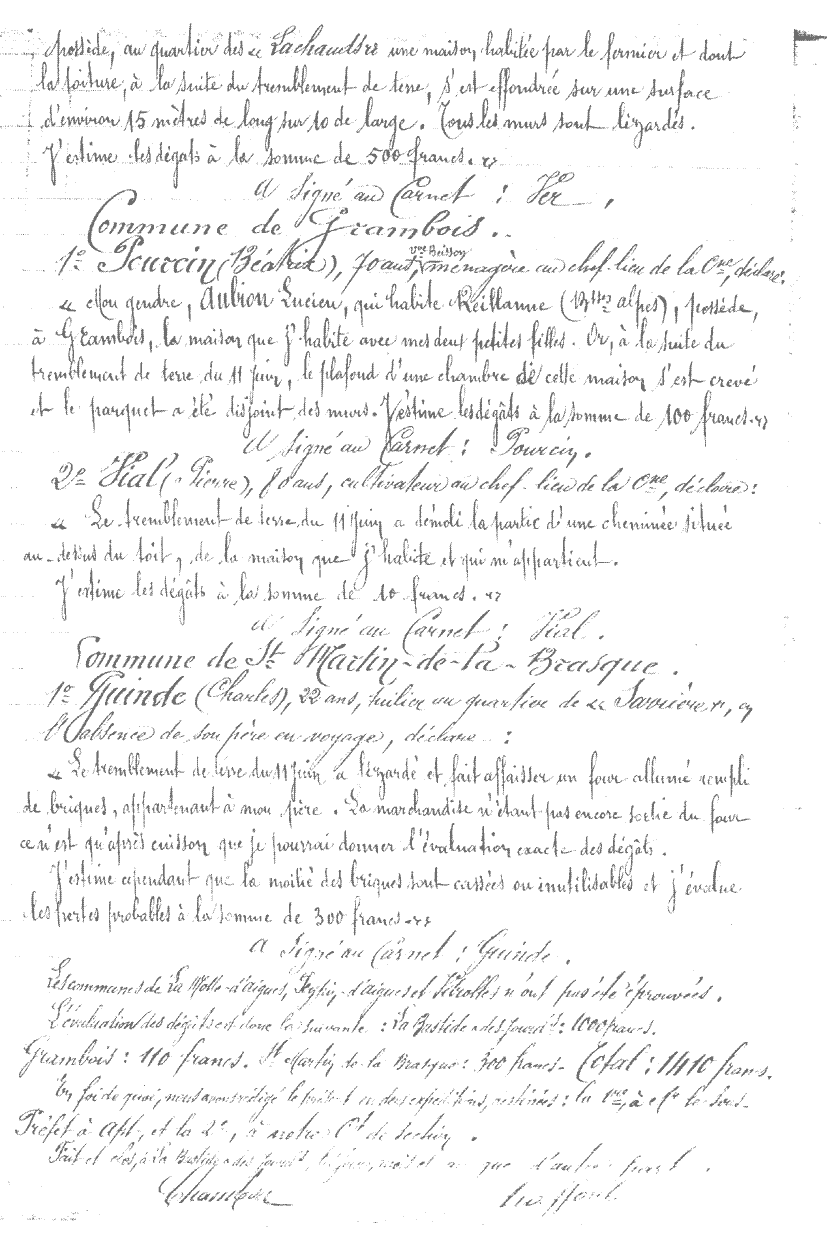 possède, au quartier des « Lachausses une maison habitée par le fermier et dont
la toiture, à la suite du tremblement de terre, s'est effondrée sur une surface
d'environ 15 mètres de long sur 10 de large. Tous les murs sont lézardés.
J'estime les dégâts à la somme de 500 francs. »
A signé au Carnet : Ver.
Commune de Grambois.
1º Pourcin (Béatrix), 70 ans, vve Buisson, ménagère au chef-lieu de la Cne, déclare:
« Mon gendre, Aubion Lucien, qui habite Reillanne (Bsses alpes), possède,
à Grambois, la maison que j'habite avec mes deux petites filles. Or, à la suite du
tremblement de terre du 11 juin, le plafond d'une chambre de cette maison s'est crevé
et le parquet a été disjoint des murs. J'estime les dégâts à la somme de 100 francs. »
A signé au Carnet : Pourcin.
2º Vial (Pierre), ans, cultivateur au chef-lieu de la Cne, déclare :
« Le tremblement de terre du 11 juin a démoli la partie d'une cheminée située
au-dessus du toit, de la maison que j'habite et qui m'appartient.
J'estime les dégâts à la somme de 10 francs. »
A signé au Carnet : Vial.
Commune de St Martin-de-la-Brasque.
1º Guinde (Charles), 22 ans, tuilier au quartier de « », en
l'absence de son père en voyage, déclare :
« Le tremblement de terre du 11 juin a lézardé et fait affaisser un four allumé rempli
de briques, appartenant à mon père. La marchandise n'étant pas encore sortie du four
ce n'est qu'après cuisson que je pourrai donner l'évaluation exacte des dégâts.
J'estime cependant que la moitié des briques sont cassées ou inutilisables et j'évalue
les pertes probables à la somme de 300 francs. »
A signé au Carnet : Guinde.
Les communes de La Motte-d'aigues, Peypin-d'aigues et Vitrolles n'ont pas été éprouvées.
L'évaluation des dégâts est donc la suivante : La Bastide-des-Jourdns : 1000 francs.
Grambois : 110 francs. St Martin de la Brasque : 300 francs. Total : 1410 francs.
En foi de quoi, nous avons rédigé le présent en deux expéditions, destinées : la 1ère, à Mr le Sous-
Préfet à Apt, et la 2e, à notre Ct de section.
Fait et clos, à La Bastide-des-Jourdns, les jour, mois et an que d'autre part.